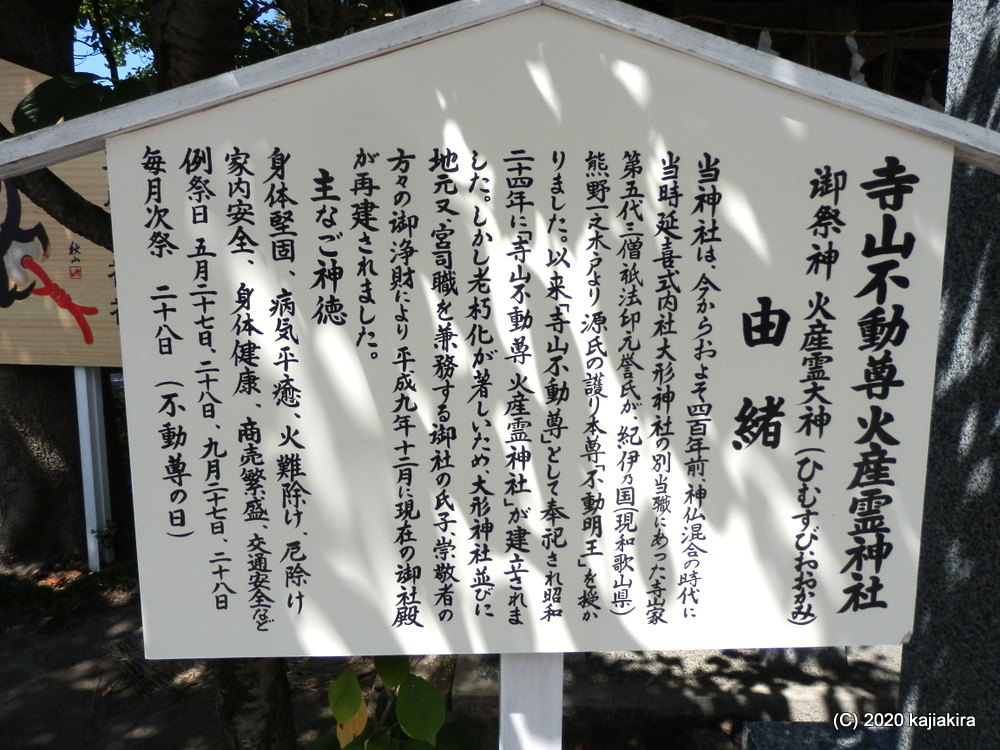 寺山不動尊火産霊神社
御祭神 火産霊大神(ひむすびおおかみ)
由緒
当神社は、今からおよそ四百年前、神仏混合の時代に
当時延喜式内社大形神社の別当職にあった寺山家
第五代三僧祇法印元誉氏が、紀伊乃国(現和歌山県)
熊野一之木戸より源氏の護り本尊「不動明王」を授か
りました。以来「寺山不動尊」として奉祀され昭和
二十四年に「寺山不動尊 火産霊神社」が建立されま
した。しかし老朽化が著しいため、大形神社並びに
地元又、宮司職を兼務する御社の氏子、崇敬者の
方々の御浄財により平成九年十二月に現在の御社殿
が再建されました。
主なご神徳
身体堅固、病気平癒、火難除け、厄除け
家内安全、身体健康、商売繁盛、交通安全など
例祭日 五月二十七日、二十八日、九月二十七日、二十八日
毎月次祭 二十八日 (不動尊の日)
秋山
(C) 2020 kajiakira